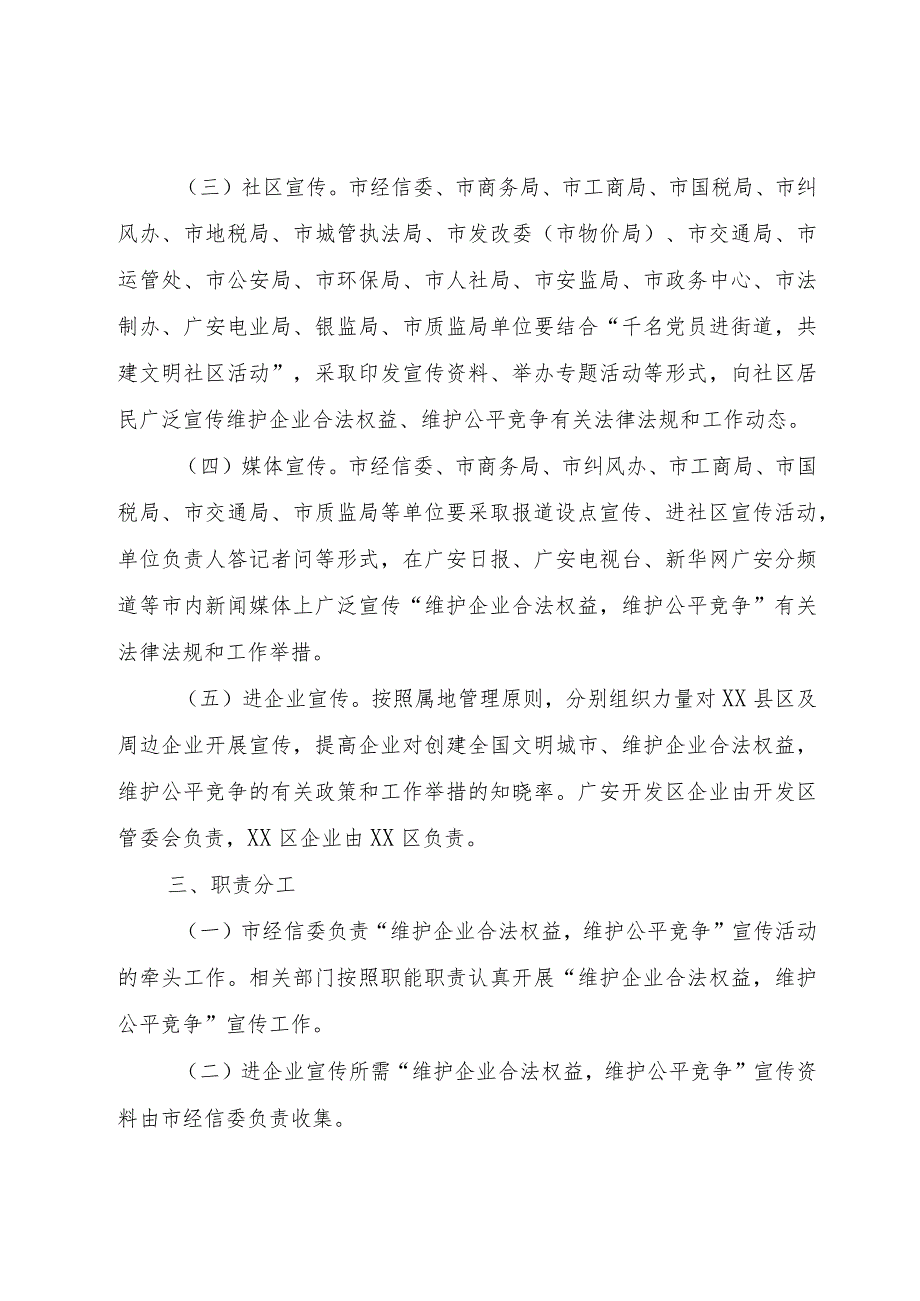 （三）社区宣传。市经信委、市商务局、市工商局、市国税局、市纠
风办、市地税局、市城管执法局、市发改委（市物价局）、市交通局、市
运管处、市公安局、市环保局、市人社局、市安监局、市政务中心、市法
制办、广安电业局、银监局、市质监局单位要结合“千名党员进街道，共
建文明社区活动”，采取印发宣传资料、举办专题活动等形式，向社区居
民广泛宣传维护企业合法权益、维护公平竞争有关法律法规和工作动态。
（四）媒体宣传。市经信委、市商务局、市纠风办、市工商局、市国
税局、市交通局、市质监局等单位要采取报道设点宣传、进社区宣传活动，
单位负责人答记者问等形式，在广安日报、广安电视台、新华网广安分频
道等市内新闻媒体上广泛宣传“维护企业合法权益，维护公平竞争”有关
法律法规和工作举措。
（五）进企业宣传。按照属地管理原则，分别组织力量对XX县区及
周边企业开展宣传，提高企业对创建全国文明城市、维护企业合法权益，
维护公平竞争的有关政策和工作举措的知晓率。广安开发区企业由开发区
管委会负责，XX区企业由XX区负责。
三、职责分工
（一）市经信委负责“维护企业合法权益，维护公平竞争”宣传活动
的牵头工作。相关部门按照职能职责认真开展“维护企业合法权益，维护
公平竞争”宣传工作。
（二）进企业宣传所需“维护企业合法权益，维护公平竞争”宣传资
料由市经信委负责收集。